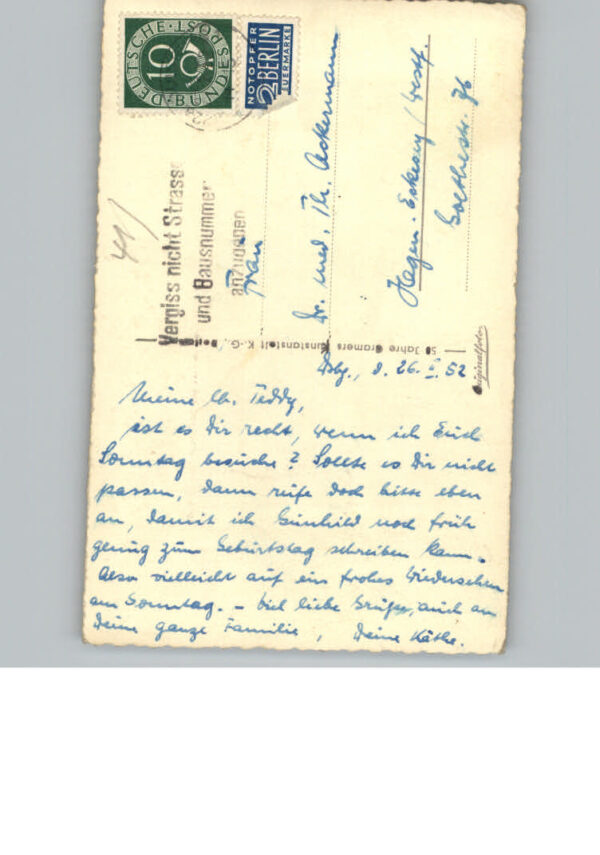 DEUTSCHE BUNDESPOST
10
NOTOPFER
2 BERLIN
STEUERMARKE
41/
Vergiss nicht Strasse
und Hausnummer
anzugeben
Frau
Dr. med. Th. Ackermann
Hagen-Eckesey/Westf.
Goethestr. 76
50 Jahre Cramers Kunstanstalt K.-G.,
Originalfoto
Dbg., d. 26. 52
Meine lb. Teddy,
ist es Dir recht, wenn ich Euch
Sonntag besuche? Sollte es Dir nicht
passen, dann rufe doch bitte eben
an, damit ich Gunhild noch früh
genug zum Geburtstag schreiben kann.
Also vielleicht auf ein frohes Wiedersehen
am Sonntag. – Viel liebe Grüße, auch an
Deine ganze Familie, Deine Käthe.